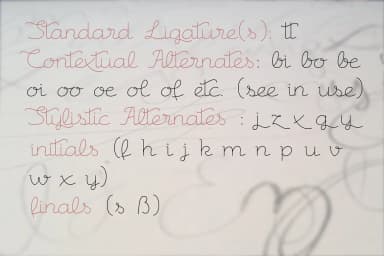 Standard Ligature(s): tt
Contextual Alternates: bi bo be
oi oo oe ol of etc. (see in use)
Stylistic Alternates : j z x g y
initials (l h i j k m n p u v
w x y)
finals (s ß)